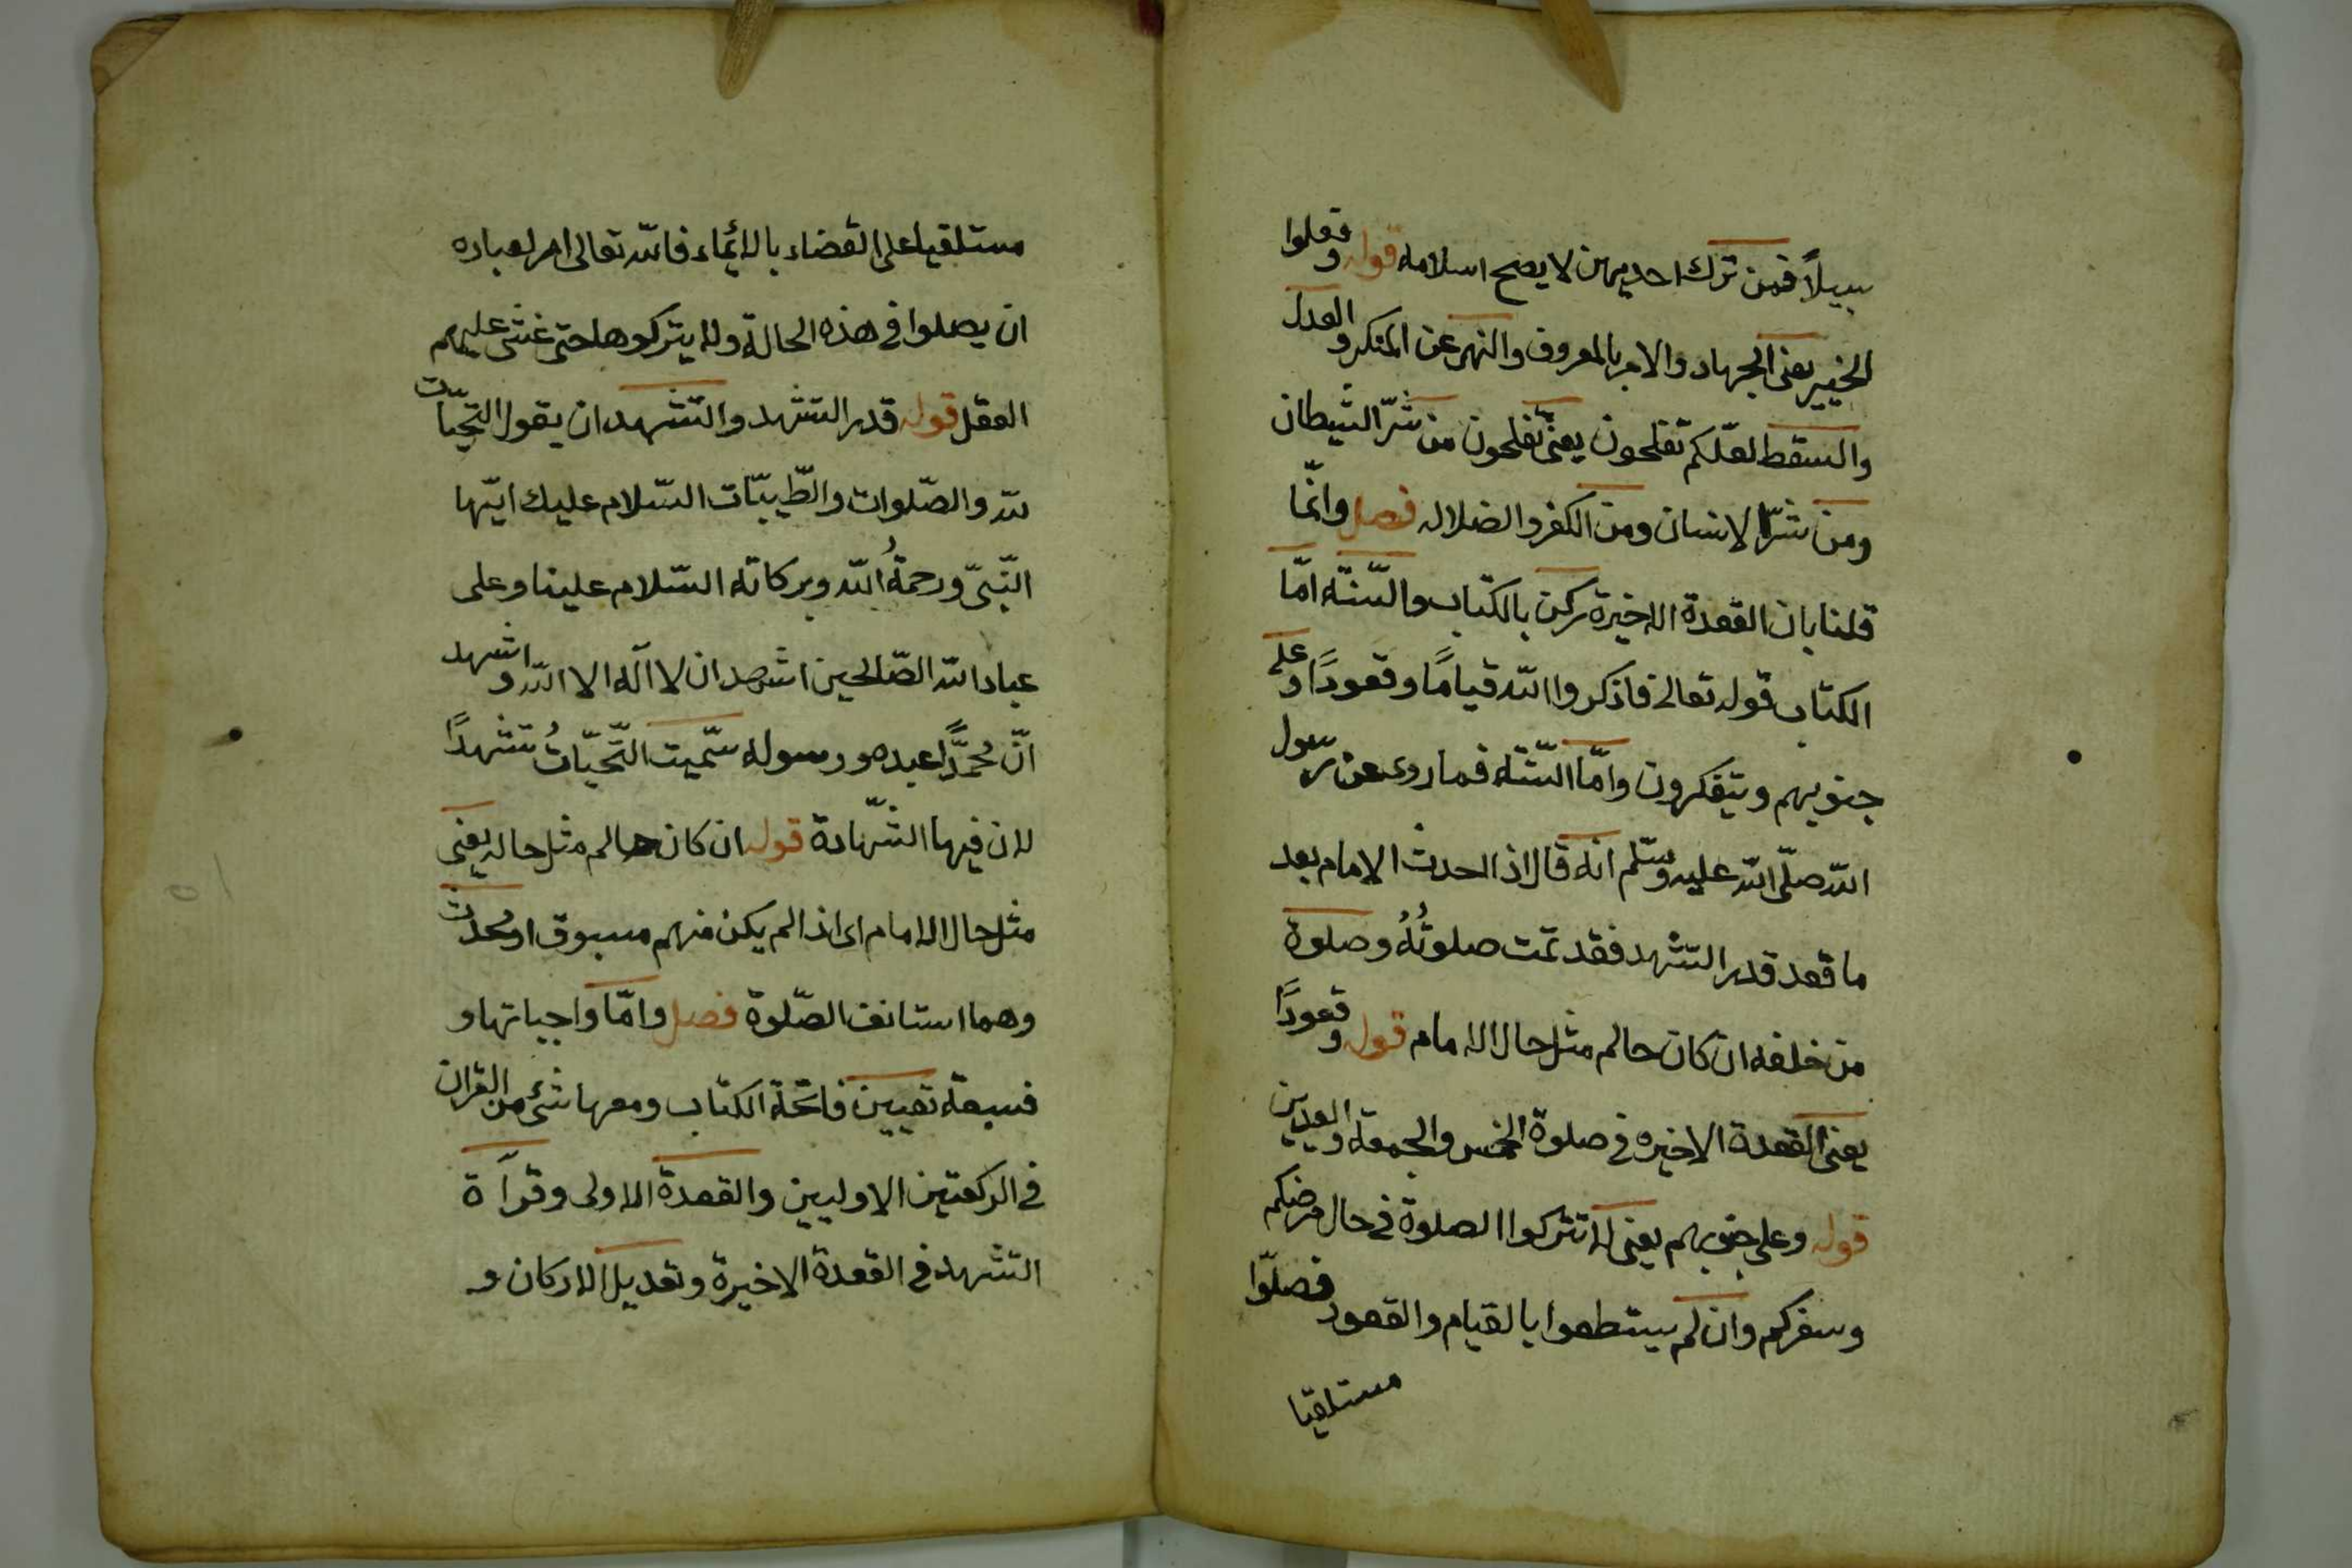 سبيلاً فمن ترك احديهن لا يصح اسلامه قوله وفعلوا
الخيير يعنى الجهاد والامر بالمعروف والنهى عن المنكر والعدل
والسقط لعلّكم تفلحون يعنى تفلحون من شرّ الشيطان
ومن شرّ الانسان ومن الكفر والضلاله فصل وانّما
قلنا بان القعدة الاخيرة ركن بالكتاب والسّنّه امّا
الكتاب قوله تعالى فاذكروا الله قيامًا وقعودًا وعلى
جنوبهم ويتفكرون وامّا السّنّة فما روى عن رسول
الله صلّى الله عليه وسلّم انه قال اذا الحدث الامام بعد
ما قعد قدر التشهد فقد تمت صلوتُهُ وصلوة
من خلفه ان كان حالهم مثل حال الامام قوله وقعودًا
يعنى القعدة الاخيره فى صلوة الخمس والجمعة والعيدين
قوله وعلى جنوبهم يعنى لا تتركوا الصلوة فى حال مرضكم
وسفركم وان لم يستطعوا بالقيام والقعود فصلّوا
مستلقيا
مستلقيا على القضاء بالايماء فالله تعالى امر لعباده
ان يصلوا فى هذه الحالة ولا يتركوها حتى غشى عليهم
العقل قوله قدر التشهد والتّشهد ان يقول التّحيّات
لله والصّلوات والطّيبّات السّلام عليك ايّها
النّبىّ ورحمةُ الله وبركاته السّلام علينا وعلى
عباد الله الصّالحين اشهد ان لا اله الا الله واشهد
انّ محمّدًا عبده ورسوله سمّيت التّحيّاتُ تشهدًا
لان فيها الشّهادة قوله ان كان حالهم مثل حاله يعنى
مثل حال الامام اى اذا لم يكن منهم مسبوق او محدث
وهما استانف الصّلوة فصل وامّا واجباتها و
فسبعة تعيين فاتحة الكتاب ومعها شئ من القران
فى الركعتين الاوليين والقعدة الاولى وقرآة
التشهد فى القعدة الاخيرة وتعديل الاركان و